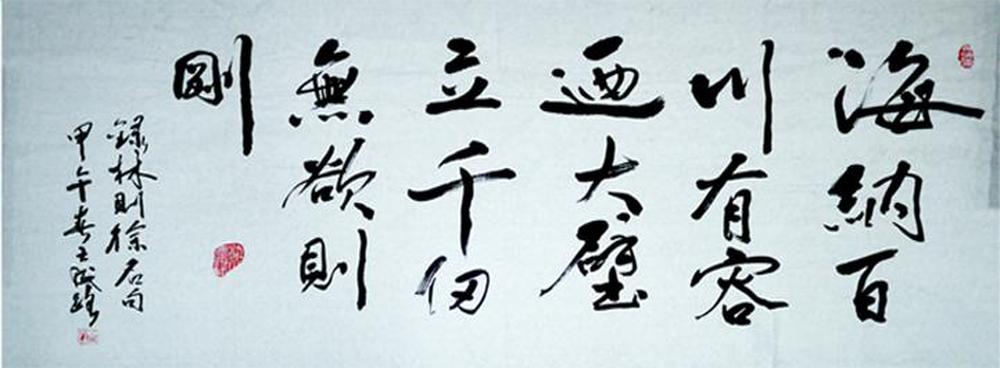 海納百
川有容
迺大壁
立千仞
無欲則
剛
録林則徐名句
甲午春王